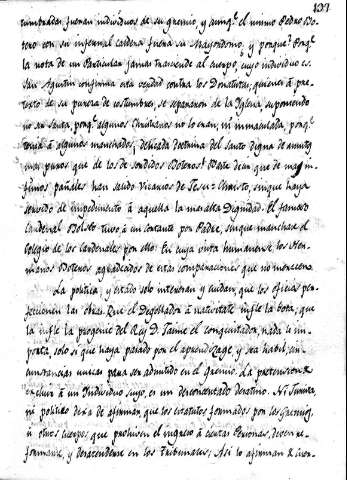 109
fueran individuos de su gremio, y aunqe. el mismo Pedro Bo-
tero con su infernal caldera fuera su Mayordomo, y porque? Porqe.
la nota de un Particular jamas trasciende al cuerpo, cuyo individuo es.
San Agustin confirma esta verdad contra los Donatistas; quienes á pre-
texto de su pureza de costumbres, se separaron de la Iglesia, suponiendo
no ser santa, porqe. algunos Christianos no lo eran; ni inmaculada, porqe.
tenia á algunos manchados; delicada Doctrina del Santo digna de
mas puros que de los de Boteros! Baste decir que de
pañales han salido Vicarios de Jesu-Christo, sin que haya
servido de impedimento á aquella la mas alta Dignidad. El famoso
Cardenal tuvo á un cortante por Padre, sin que manchase el
Colegio de los Cardenales por ello: En cuya vista los Her-
manos Boteros agradecidos de estas comparaciones que no merecen.
La politica, y estado solo interesan y cuidan, que los oficios per-
feccionen las obras. Que el Degollador á nativitate infle la bota; que
la infle la progenie del Rey D. Jaime el conquistador, nada le im-
porta, solo si que haya pasado por el aprendizage, y sea habil, cir-
cunstancias unicas para ser admitido en el Gremio. La pretension de
excluir á un Individuo suyo, es un desconcertado desatino. Ni
ni politico dexa de afirmar, que los estatutos formados por los Gremios,
u otros cuerpos que prohiven el ingreso á ciertas Personas, deven re-
formarse, y desatenderse en los Tribunales; Asi lo afirman